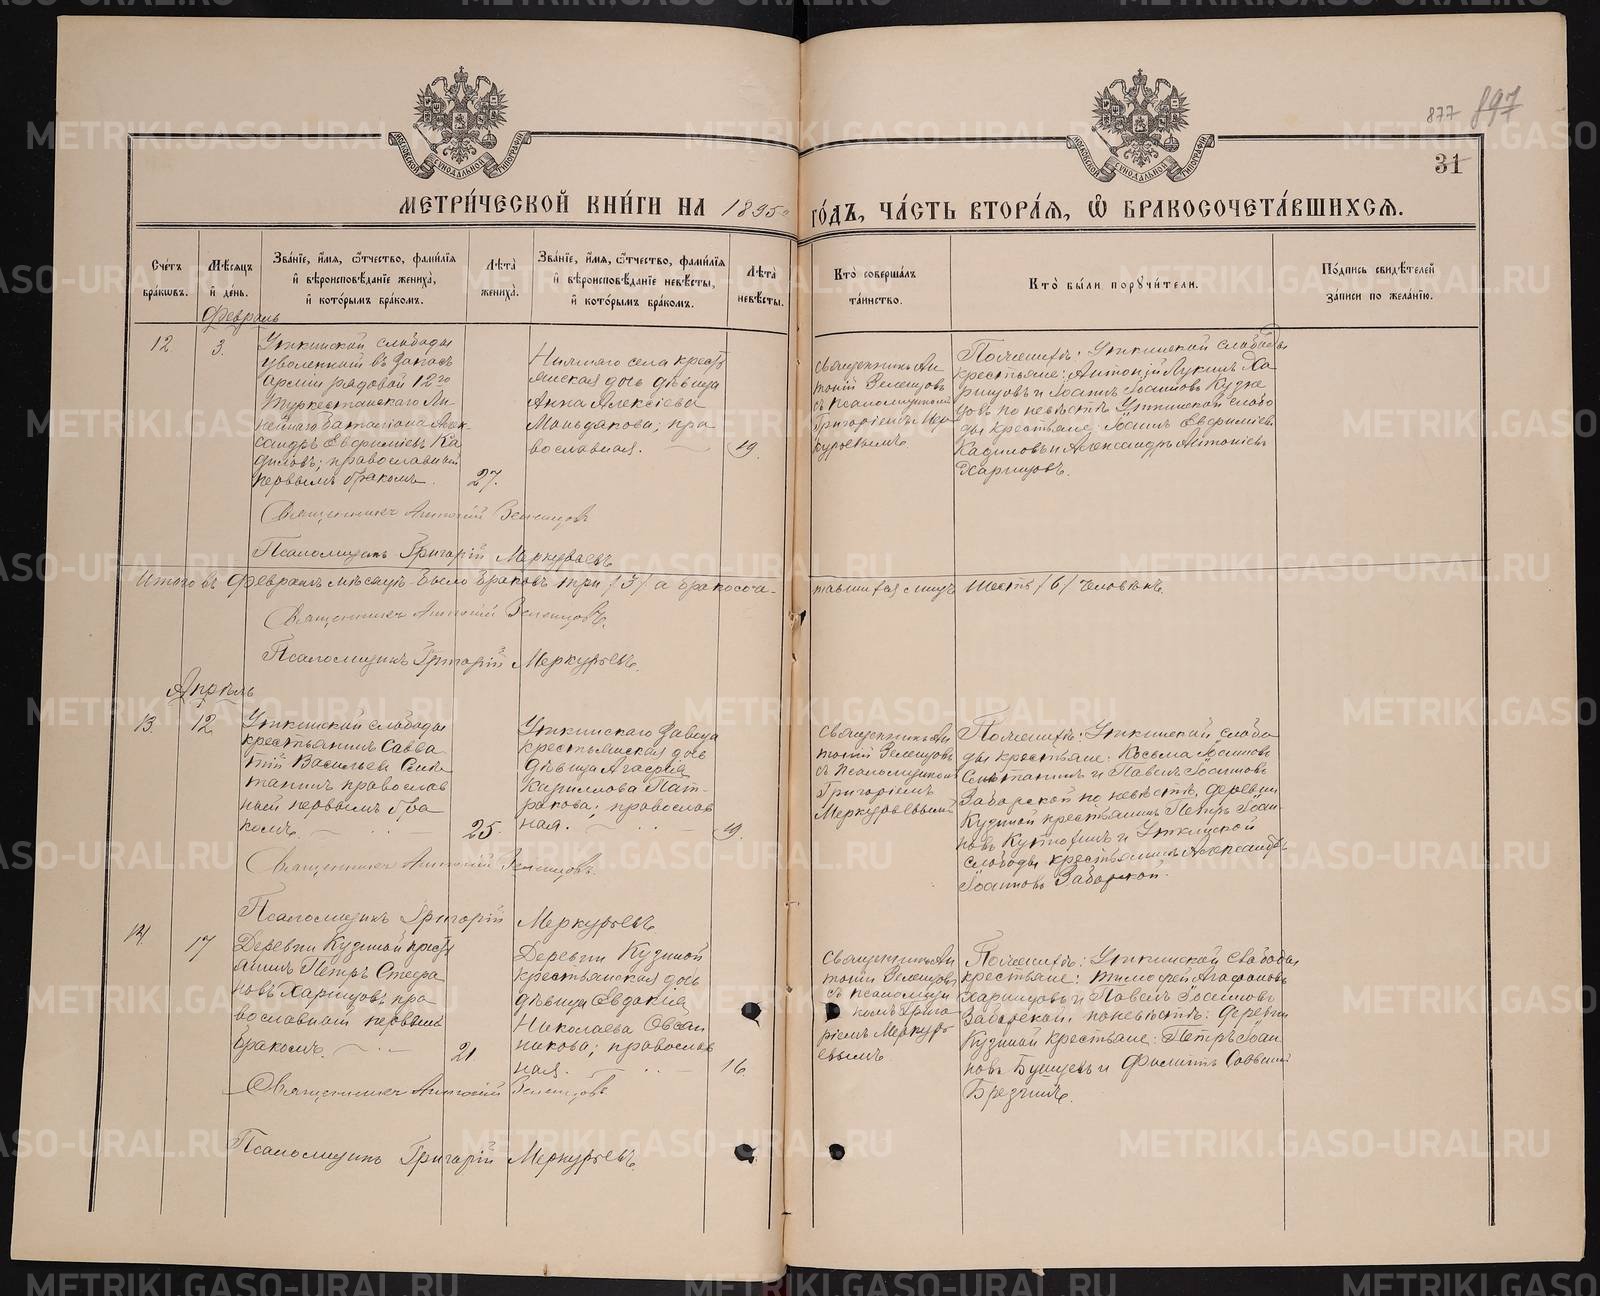 877 897
31
МЕТРИ́ЧЕСКОЙ КНИ́ГИ НА 1895 ГО́ДЪ, ЧА́СТЬ ВТОРА́Я, Ѡ҆ БРАКОСОЧЕТА́ВШИХСЯ.
Сче́тъ бра́кωвъ.
Мѣ́сяцъ и҆ де́нь.
Зва́нїе, и҆́мя, ѻ҆́тчество, фамѝлїя и҆ вѣроисповѣ́данїе жениха̀, и҆ кото́рымъ бра́комъ.
Лѣ́та жениха̀.
Зва́нїе, и҆́мя, ѻ҆́тчество, фамѝлїя и҆ вѣроисповѣ́данїе невѣ́сты, и҆ кото́рымъ бра́комъ.
Лѣ́та невѣ́сты.
Кто̀ соверша́лъ та́инство.
Кто̀ бы́ли порꙋчи́тели.
По́дпись свидѣ́телей за́писи по жела́нїю.
Февраль
12
3.
Уткинской слободы
уволенный въ запасъ
армии рядовой 12го
Туркестанскаго Ли-
нейнаго баталіона Алек-
сандръ
православный
первымъ бракомъ.
27.
села крестъ
янская дочь дѣвица
Анна Алексіева
пра
вославная.
19.
Священникъ Ан
тоній Зеленцовъ
съ псаломщикомъ
Григоріемъ Мер
курьевымъ.
По женихѣ: Уткинской слободы
крестьяне: Антоній Лукинъ Ха
ринцовъ и Іоаннъ Іоанновъ Кузне
цовъ по невѣстѣ Уткинской слобо
ды крестьяне: Іоаннъ
Кадиловъ и Александръ Антоніевъ
Харинцовъ.
Священникъ Антоній Зеленцовъ
Псаломщикъ Григорій Меркурьевъ
Итого въ Февралѣ мѣсяцѣ было браковъ три /3/ а бракосоче-
тавшихся лицъ шесть /6/ человѣкъ.
Священникъ Антоній Зеленцовъ.
Псаломщикъ Григорій Меркурьевъ.
Апрѣль
13.
12.
Уткинской слободы
крестьянинъ Савва
тій Васильевъ
православ
ный первымъ бра
комъ.
25.
Уткинскаго Завода
крестьянская дочь
дѣвица Агафія
Кириллова Пат-
ракова; православ
ная.
19.
Священникъ Ан
тоній Зеленцовъ
съ псаломщикомъ
Григоріемъ
Меркурьевымъ
По женихѣ: Уткинской слобо
ды крестьяне: Косьма Іоанновъ
и Павелъ Іоанновъ
Заборской по невѣстѣ, деревни
Кузиной крестьянинъ Петръ Іоан
новъ и Уткинской
слободы крестьянинъ Александръ
Іоанновъ Заборской.
Священникъ Антоній Зеленцовъ.
Псаломщикъ Григорій Меркурьевъ.
14.
17
Деревни Кузиной крестъ
янинъ Петръ Стефа
новъ Харинцовъ пра
вославный первымъ
бракомъ.
21
Деревни Кузиной
крестьянская дочь
дѣвица Евдокія
Николаева Овсян
никова; православ
ная.
16.
Священникъ Ан
тоній Зеленцовъ
съ псаломщи
комъ Григо
ріемъ Меркурь
евымъ
По женихѣ: Уткинской Слободы
крестьяне: Тимофей Агафоновъ
Харинцовъ и Павелъ Іоанновъ
Заборской по невѣстѣ: деревни
Кузиной крестьяне: Петръ Іоан
новъ Бушуевъ и Филиппъ Саввинъ
Брезгинъ.
Священникъ Антоній Зеленцовъ
Псаломщикъ Григорій Меркурьевъ.